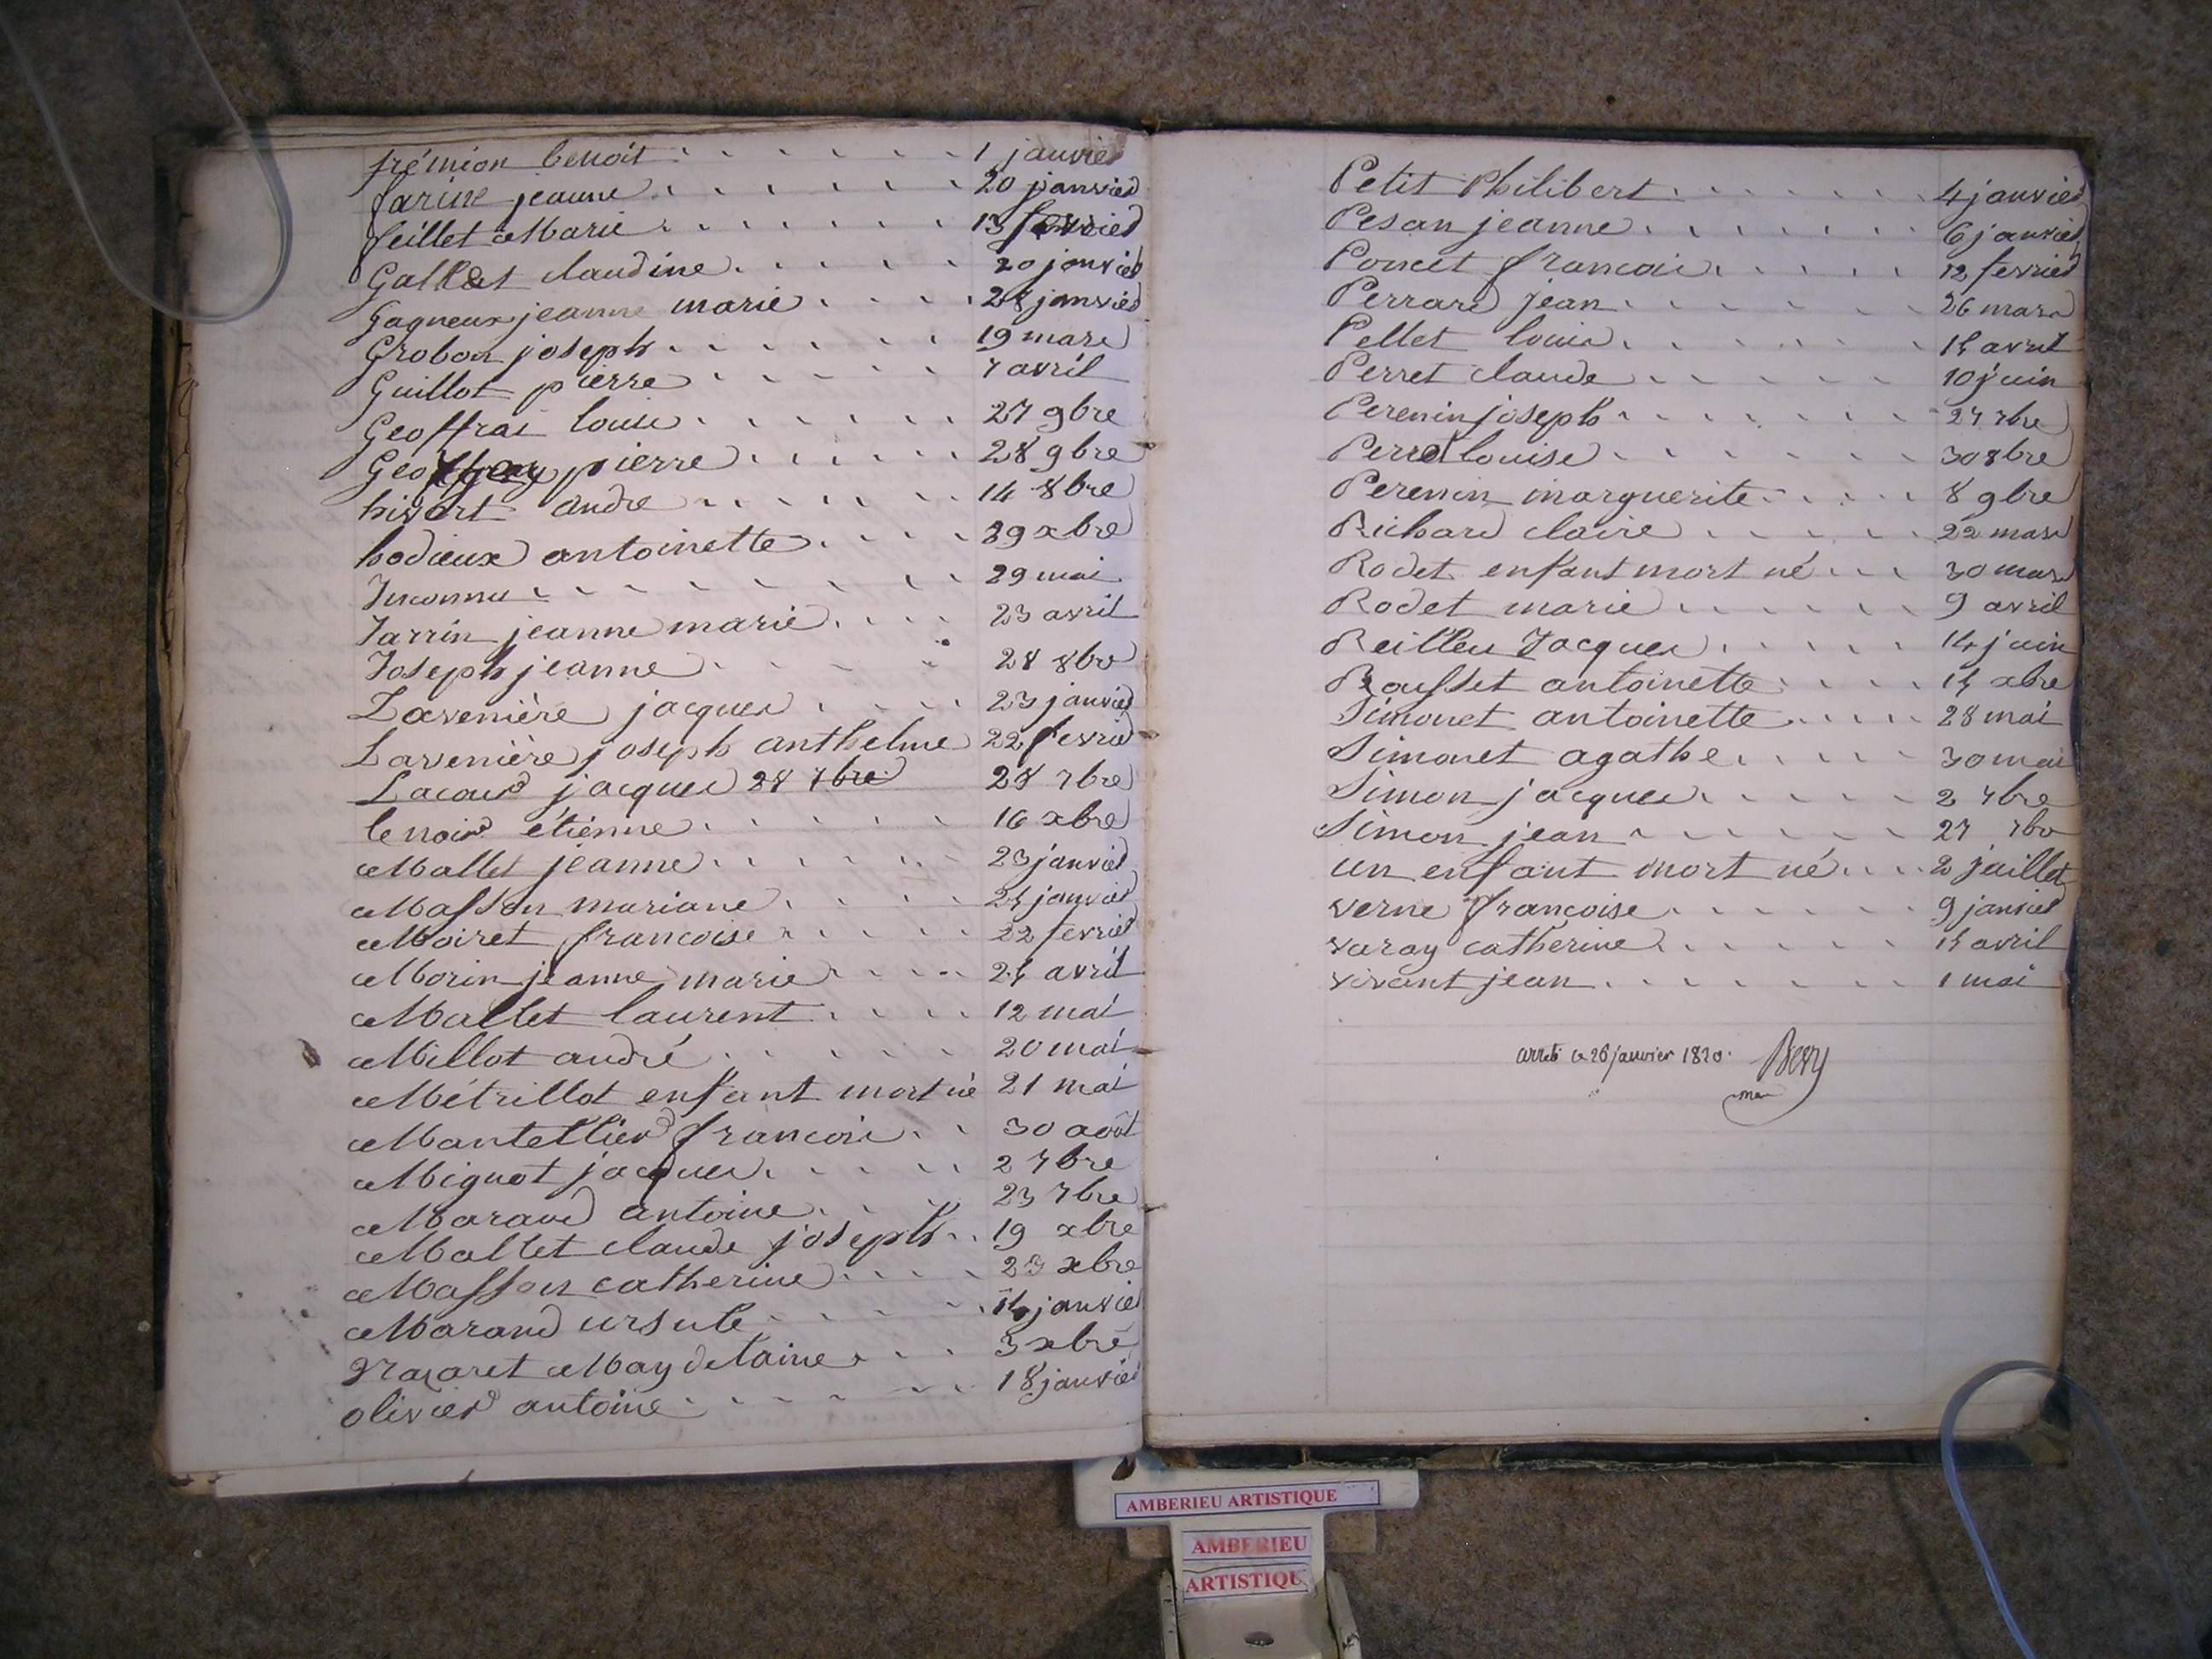 frémion benoit 1 janvier
farine jeanne 20 janvier
feillet Marie 13 fevrier
Gallet claudine 20 janvier
Gagneux jeanne marie 28 janvier
Grobon joseph 19 mars
Guillot pierre 7 avril
Geoffrai louis 27 9bre
Geoffray pierre 28 9bre
hivert andre 14 8bre
hodieux antoinette 29 xbre
Inconnu 29 mai
Jarrin jeanne marie 23 avril
Joseph jeanne 28 8bre
Lavenière jacques 23 janvier
Lavenière joseph anthelme 22 fevrier
Lacour jacques 28 7bre 28 7bre
lenoir étienne 16 xbre
Mallet jeanne 23 janvier
Masson mariane 25 janvier
Moiret francoise 22 fevrier
Morin jeanne marie 25 avril
Mallet laurent 12 mai
Millot andré 20 mai
Métrillot enfant mort né 21 mai
Mantellier francois 30 août
Mignot jacques 2 7bre
Marand antoine 23 7bre
Mallet claude joseph 19 xbre
Masson catherine 23 xbre
Marand ursule janvier
Nazaret Maydelaine 3 xbre
olivier antoine 18 janvier
Petit Philibert 4 janvier
Pesan jeanne 6 janvier
Poncet francois 12 fevrier
Perrard jean 26 mars
Pellet louis 15 avril
Perret claude 10 juin
Perenin joseph 27 7bre
Perret louise 30 8bre
Perenin marguerite 8 9bre
Richard claire 22 mars
Rodet enfant mort né 30 mars
Rodet marie 9 avril
Reilleu Jacques 14 juin
Rousset antoinette 15 xbre
Simonet antoinette 28 mai
Simonet agathe 30 mai
Simon jacques 2 7bre
Simon jean 27 7bre
un enfant mort né 2 juillet
verne francoise 9 janvier
varay catherine 15 avril
vivant jean 1 mai
arreté le 26 janvier 1820.
AMBERIEU ARTISTIQUE
AMBERIEU
ARTISTIQU